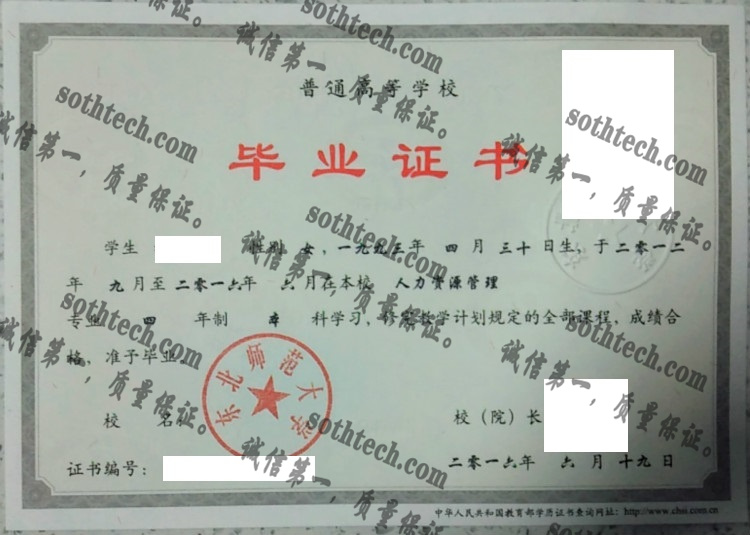 普通高等学校
毕业证书
学生 性别 女，一九九三年 四 月 三十 日生，于二〇一二
年 九 月至 二〇一六年 六 月在本校 人力资源管理
专业 四 年制 本 科学习，修完教学计划规定的全部课程，成绩合
格，准予毕业。
校 名：
东北师范大学
校（院）长
证书编号：
二〇一六年 六 月 十九 日
中华人民共和国教育部学历证书查询网址：http://www.chsi.com.cn
sothtech.com
诚信第一，质量保证。
sothtech.com
诚信第一，质量保证。
sothtech.com
诚信第一，质量保证。
sothtech.com
诚信第一，质量保证。
sothtech.com
诚信第一，质量保证。
sothtech.com
诚信第一，质量保证。
sothtech.com
诚信第一，质量保证。
sothtech.com